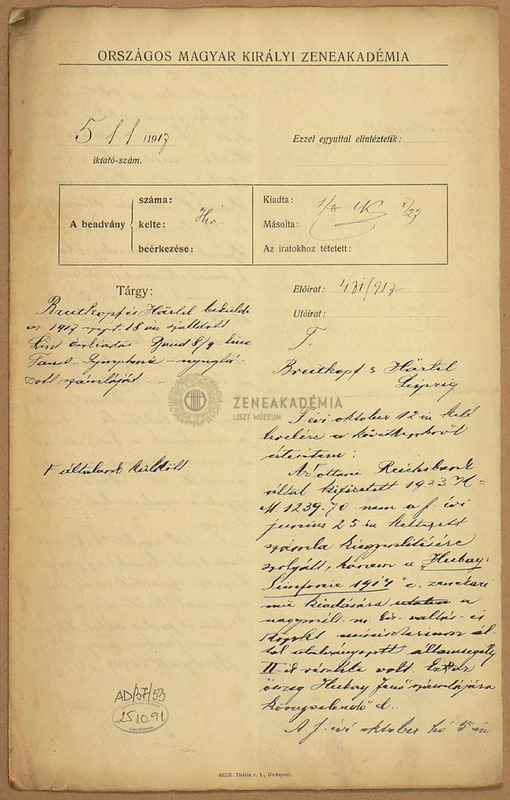 ORSZÁGOS MAGYAR KIRÁLYI ZENEAKADÉMIA
511 /1917
iktató-szám.
Ezzel egyuttal elintéztetik:
A beadvány
száma:
kelte:
beérkezése:
Kiadta:
Másolta:
Az iratokhoz tétetett:
Tárgy:
Breitkopf és Härtel beküldi
az 1917 szept. 18 án szállított
Liszt Band
Faust-Symphonie
számláját
Előirat: 481/917
Utóirat:
T.
Breitkopf & Härtel
Leipzig
F. évi október 12 én kelt
levelére a következőkről
értesítem:
Az ottani Reichsbank
által kifizetett 1933 K =
M 1239.70 nem a f. évi
junius 25-én keltezett
számla kiegyenlítésére
szolgált, hanem a "Hubay:
Simfonie 1914" c. zenekari
mű kiadására
nagymélt. m. kir. vallás- és
közokt. ministerium ál-
tal utalványozott államsegély
II ik részlete volt. Ez az
összeg Hubay Jenő számlájára
könyvelendő el.
A f. évi október hó 5 én
által küldött
ZENEAKADÉMIA
LISZT MÚZEUM
AD/57/53
25.10.91
Thália r. t., Budapest.